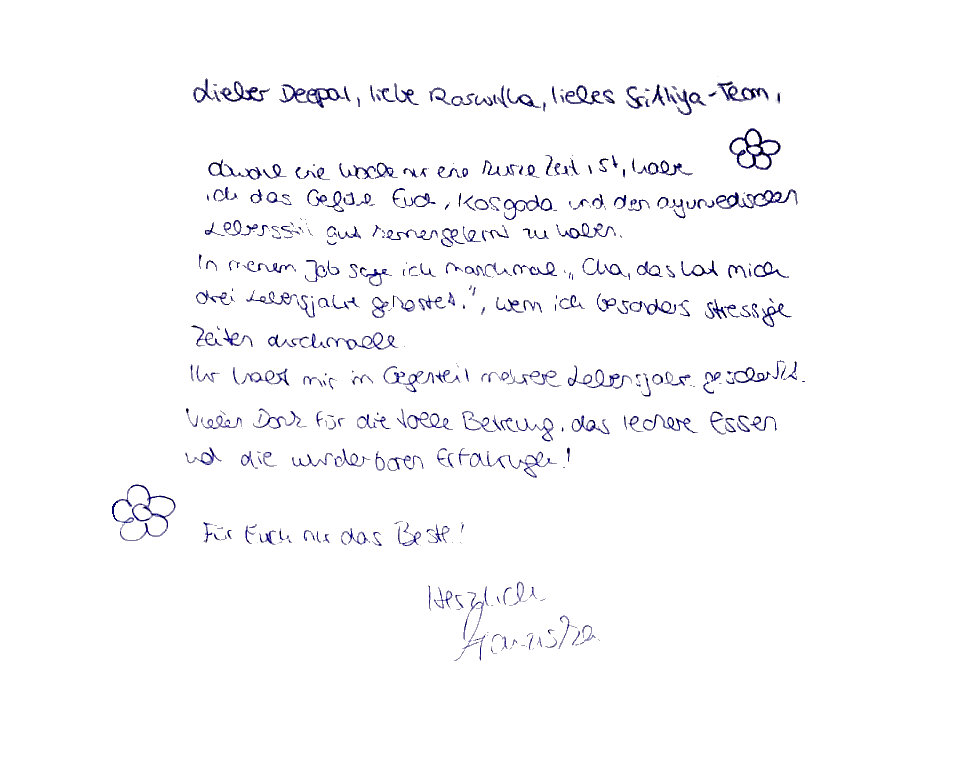 Lieber Deepal, liebe Raswika, liebes Team,
obwohl eine Woche nur eine kurze Zeit ist, habe
ich das Gefühl Euch, Kosgoda und den ayurvedischen
Lebensstil gut kennengelernt zu haben.
In meinem Job sage ich manchmal „ das hat mich
drei Lebensjahre gekostet.", wenn ich besonders stressige
Zeiten durchmache.
Ihr habt mir im Gegenteil mehrere Lebensjahre geschenkt.
Vielen Dank für die tolle Betreuung, das leckere Essen
und die wunderbaren Erfahrungen!
Für Euch nur das Beste!
Herzlich
Franziska